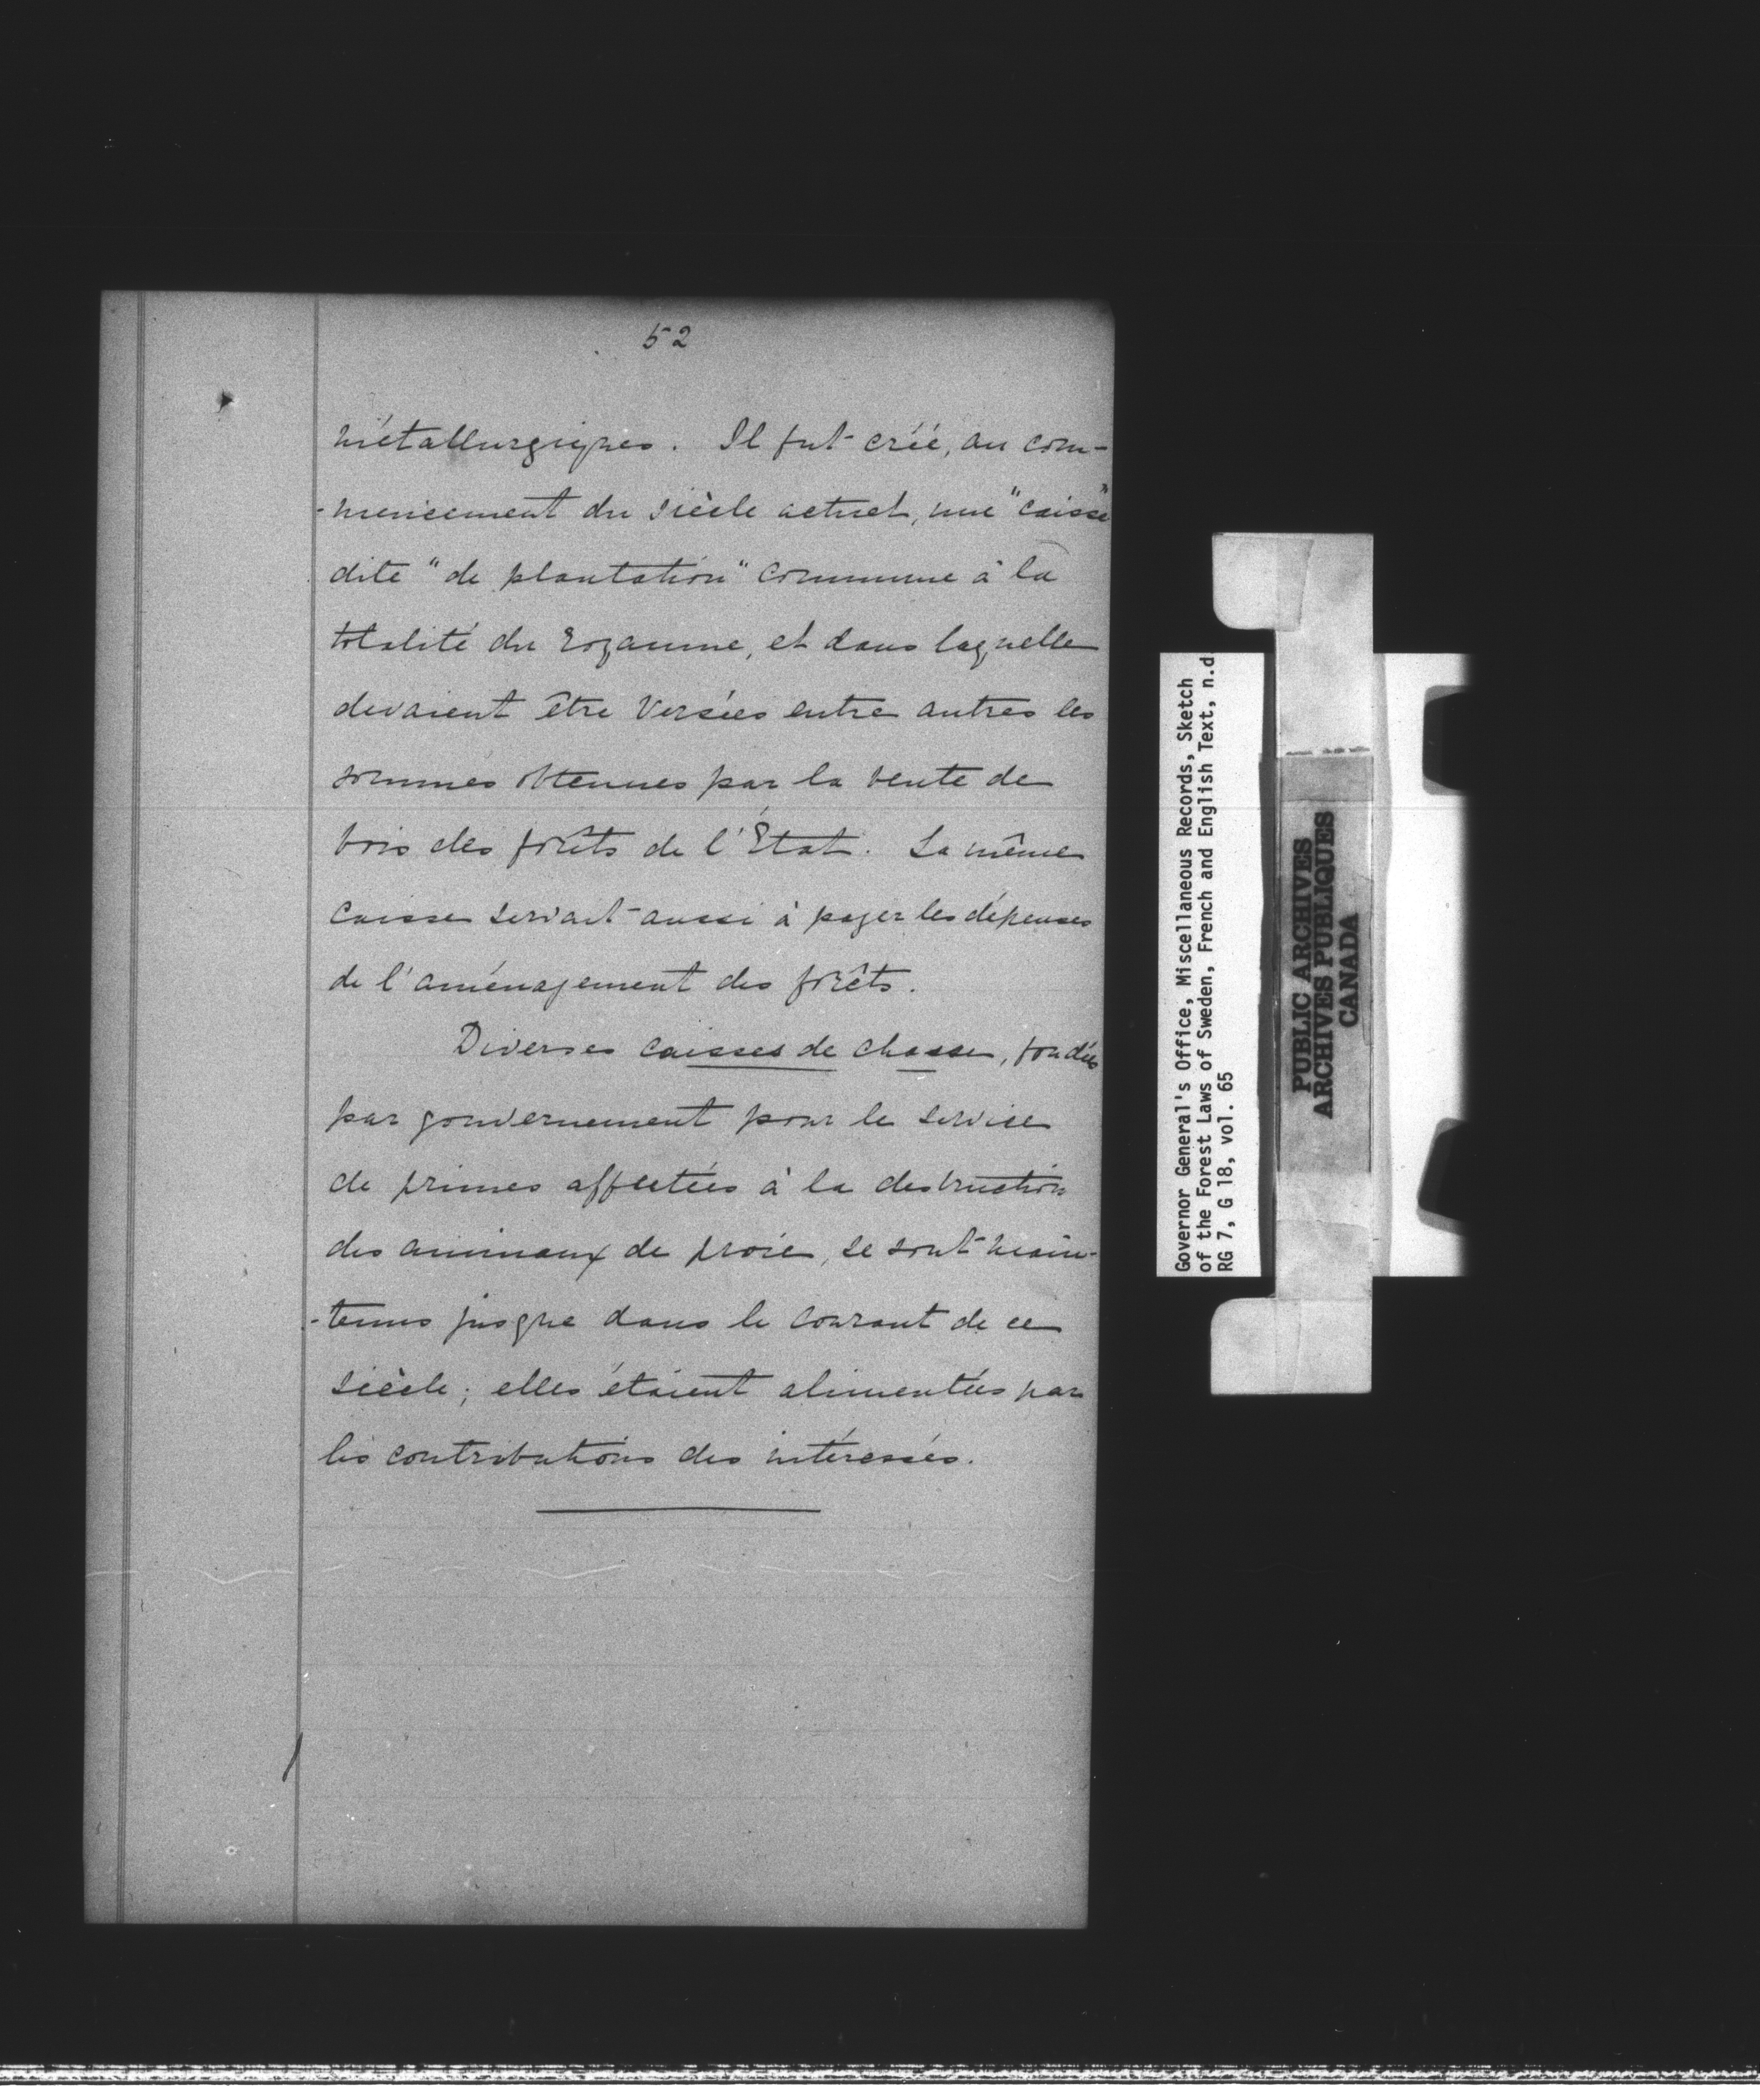 52
métallurgiques. Il fut créé, au com-
-mencement du siècle actuel, une "caisse"
dite "de plantation" commune à la
totalité du royaume, et dans laquelle
devaient être versées entre autres les
sommes obtenues par la vente de
bois des forêts de l'État. La même
caisse servait aussi à payer les dépenses
de l'aménagement des forêts.
Diverses caisses de chasse, fondées
par gouvernement pour le service
de primes affectées à la destruction
des animaux de proie, se sont main-
-tenus jusque dans le courant de ce
siècle; elles étaient alimentées par
les contributions des intéressés.
Governor General's Office, Miscellaneous Records, Sketch
of the Forest Laws of Sweden, French and English Text, n.d
RG 7, G 18, vol. 65
PUBLIC ARCHIVES
ARCHIVES PUBLIQUES
CANADA